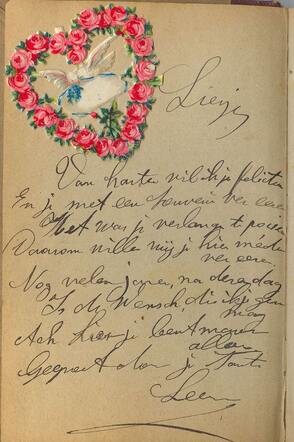 Liezje
Van harte wil ik je feliciteren
En je met een souvenir ver eeren
Het was je verlangen
Daarom willen wij je hier mede
ver eeren.
Nog velen jaren, na dezen dag
Is de Wensch, die ik je
mag
Ach hier je bent
allen
door je Tante
Leen